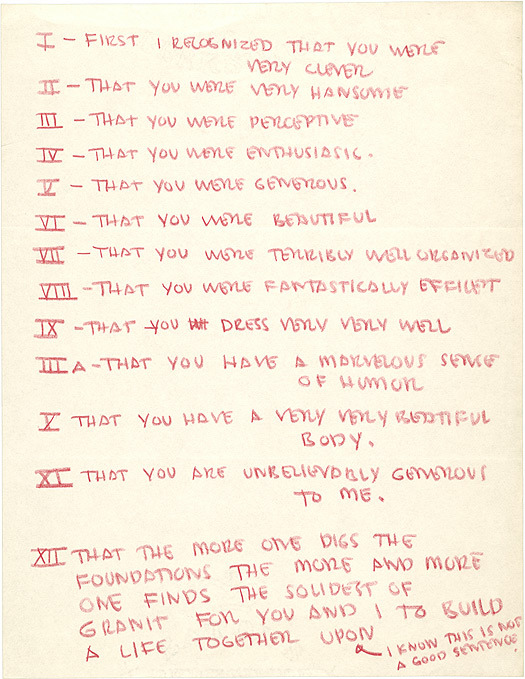 I - FIRST I RECOGNIZED THAT YOU WERE
VERY CLEVER
II - THAT YOU WERE VERY HANSOME
III - THAT YOU WERE PERCEPTIVE
IV - THAT YOU WERE ENTHUSIASIC.
V - THAT YOU WERE GENEROUS.
VI - THAT YOU WERE BEAUTIFUL
VII - THAT YOU WERE TERRIBLY WELL ORGANIZED
VIII - THAT YOU WERE FANTASTICALLY EFFICIET
IX - THAT YOU DRESS VERY VERY WELL
III A - THAT YOU HAVE A MARVELOUS SENSE
OF HUMOR
X THAT YOU HAVE A VERY VERY BEATIFUL
BODY.
XI THAT YOU ARE UNBELIEVABLY GENEROUS
TO ME.
XII THAT THE MORE ONE DIGS THE
FOUNDATIONS THE MORE AND MORE
ONE FINDS THE SOLIDEST OF
GRANIT FOR YOU AND I TO BUILD
A LIFE TOGETHER UPON
I KNOW THIS IS NOT
A GOOD SENTENCE.